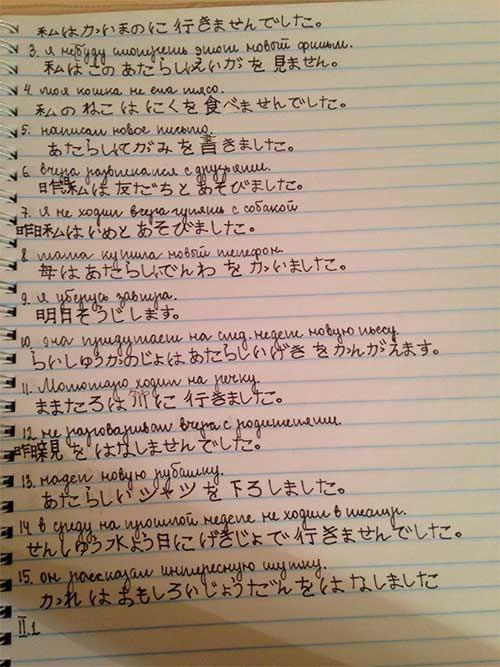 私はかいものに行きませんでした。
3. я небуду смотреть этот новый фильм.
私はこのあたらしいえいがを見ません。
4. моя кошка не ела мясо.
私のねこはにくを食べませんでした。
5. написал новое письмо.
あたらしいてがみを書きました。
6. вчера развлекался с друзьями.
昨日私は友だちとあそびました。
7. я не ходил вчера гулять с собакой
昨日私はいぬとあそびました。
8. мама купила новый телефон.
母はあたらしいでんわをかいました。
9. я уберусь завтра.
明日そうじします。
10. она придумает на след. неделе новую пьесу
らいしゅうかのじょはあたらしいげきをかんがえます。
11. Момотаро ходил на речку.
ままたろは に行きました。
12. не разговаривал вчера с родителями.
昨 見をはなしませんでした。
13. надел новую рубашку.
あたらしいシャツを下ろしました。
14. в среду на прошлой неделе не ходил в театр.
せんしゅう水よう日にげきじょで行きませんでした。
15. он рассказал интересную шутку.
かれはおもしろいじょうだんをはなしました
II.1